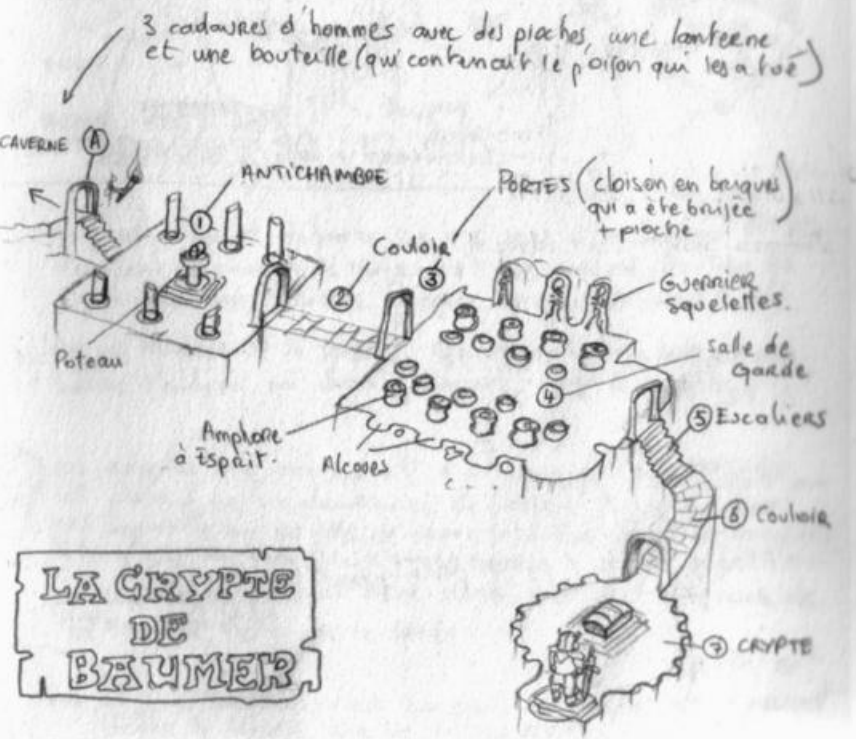 3 cadavres d'hommes avec des pioches, une lanterne
et une bouteille (qui contenait le poison qui les a tué)
CAVERNE A
1 ANTICHAMBRE
PORTES (cloison en briques
qui a été brisée
+ pioche)
Couloir
2
3
GUERRIER
Squelettes.
Poteau
salle de
Garde
4
Amphore
à Esprit.
Alcoves
5 Escaliers
6 Couloir
LA CRYPTE
DE
BAUMER
7 CRYPTE